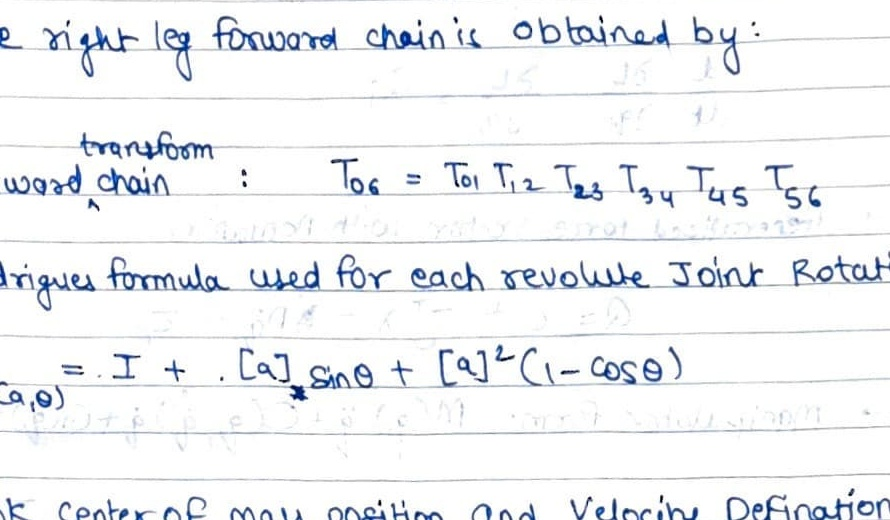 e right leg forward chain is obtained by:
transform
ward ^ chain : T06 = T01 T12 T23 T34 T45 T56
drigues formula used for each revolute Joint Rotati
= . I + . [a]× sinθ + [a]² (1 - cosθ)
(a,θ)
k center of mass position and Velocity Defination